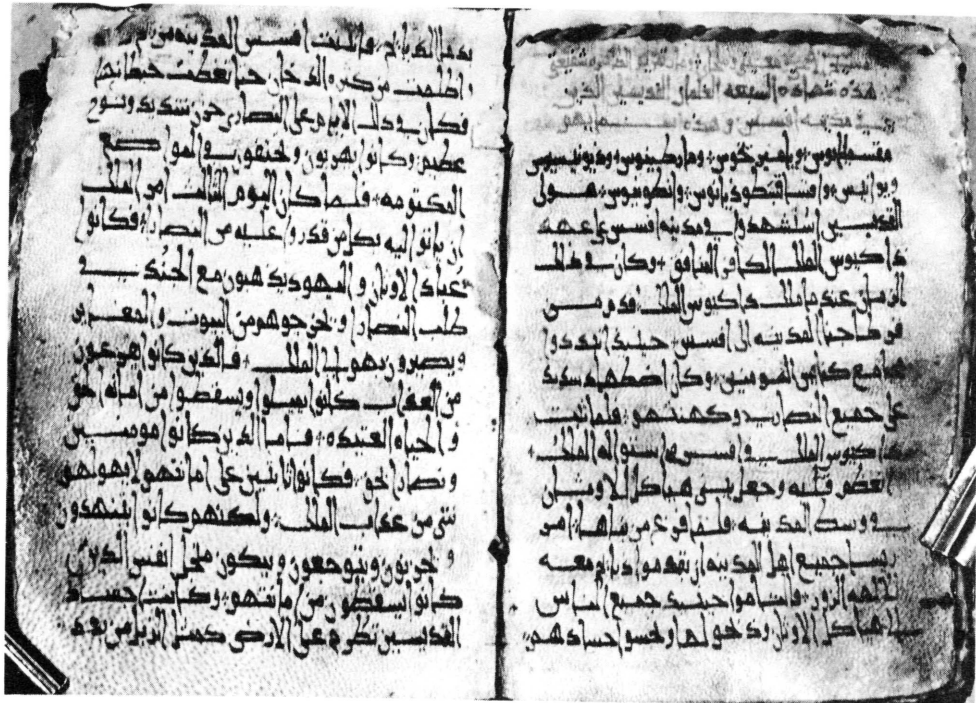 معيني
هذه شهاده السبعه الغلمان القديسين الذين
في مدينه افسس وهذه
مقسمليانوس ويامليخوس ومارطينوس وديونيسيوس
ويوانيس واقساقسطوديانوس وانطونيوس هولى
القديسين استشهدوا في مدينه افسس على عهد
داكيوس الملك الكافر المنافق وكان في ذلك
الزمن عندما ملك داكيوس الملك قدم من
قرطاجنا المدينه الى افسس حينيذ ابتددوا
مجامع كثير من المومنين وكان اضطهاد شديد
على جميع النصارى وكهنتهم فلما ثبت
داكيوس الملك في افسس واستوا له الملك
اعظم قلبه وجعل يبني هياكل للاوثان
في وسط المدينه فلما فرغ من بناها امر
ريسا جميع اهل المدينه ان يقدموا ذبايح معه
للالهه الزور فاقاموا حينيذ جميع الناس
في هياكل الاوثان ودخولها ونجسوا اجسادهم
بدما الذبايح افسس المدينه من
واظلمت من كثره الدخان حتا تغطت حيطانها
فكان في ذلك الايام على النصارى حزن شديد ونوح
عظيم وكانوا يهربون ويختفون في المواضع
المكتومه فلما كان اليوم الثالث امر الملك
ان ياتوا اليه بكل من قدروا عليه من النصارا فكانوا
عباد الاوثان واليهود يذهبون مع الجند في
طلب النصارا ويخرجوهم من البيوت والمغاير
ويصيرون بهم الى الملك فالذين كانوا يفزعون
من العقاب كانوا يميلوا ويسقطوا من امانه الحق
والحياه العتيده فاما الذين كانوا مومنين
ونصارا حق فكانوا ثابتين على امانتهم لا يهولهم
شي من عذاب الملك ولكنهم كانوا يتنهدون
ويحزنون ويتوجعون ويبكون على انفس الذين
كانوا يسقطون من امانتهم وكانت اجساد
القديسين تطرح على الارض كمثل الزبل من بعد